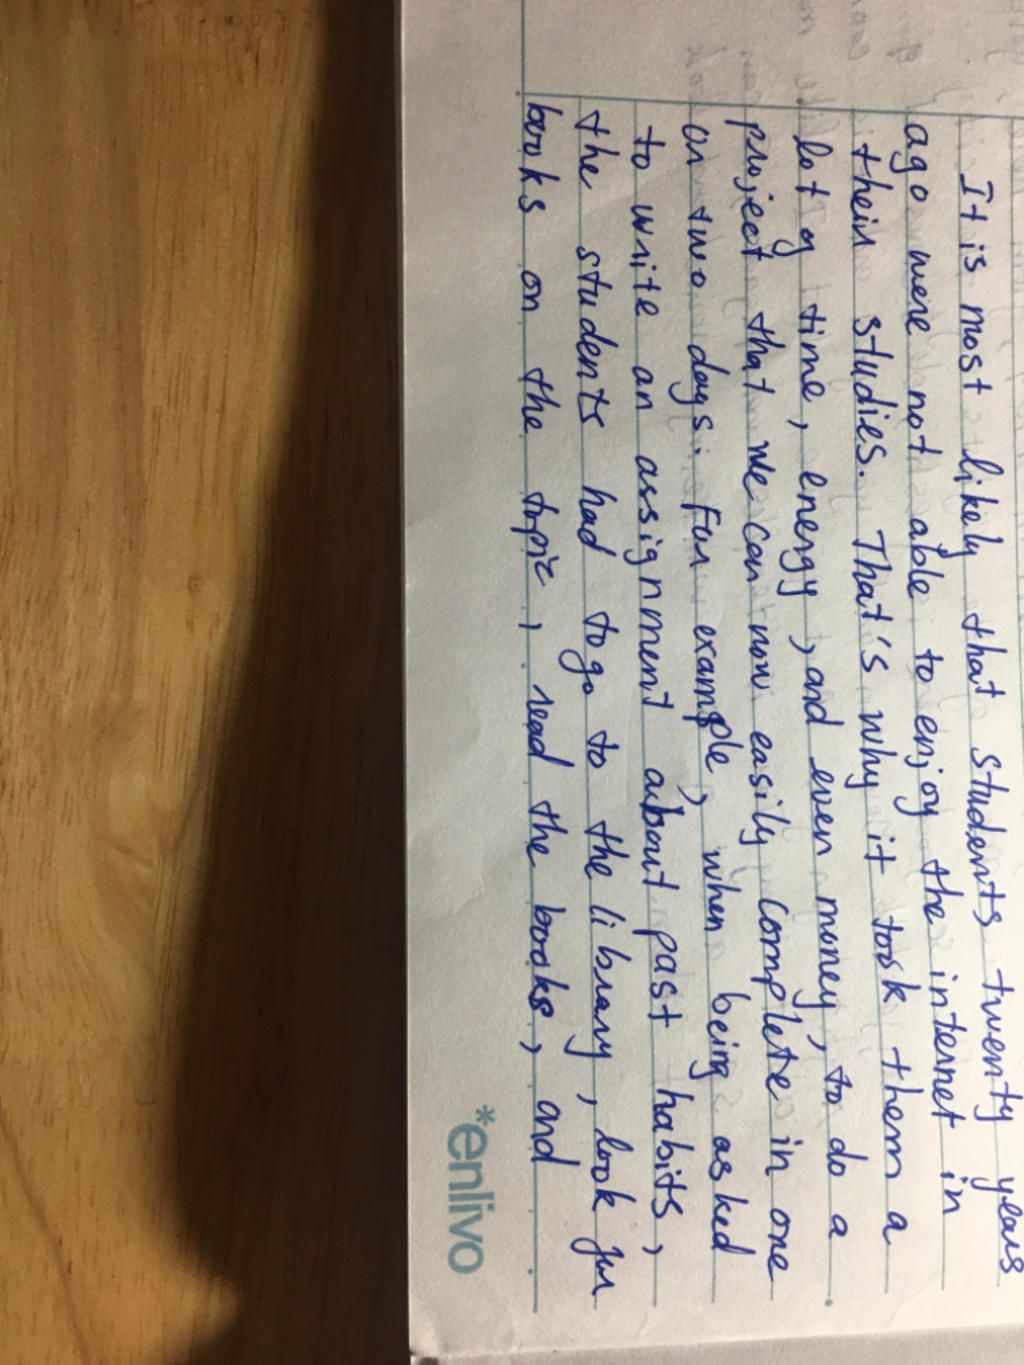 It is most likely that students twenty years
ago were not able to enjoy the internet in
their studies. That's why it took them a
lot of time, energy, and even money, to do a
project that we can now easily complete in one
or two days. For example, when being asked
to write an assignment about past habits,
the students had to go to the library, look for
books on the topic, read the books, and
*enlivo